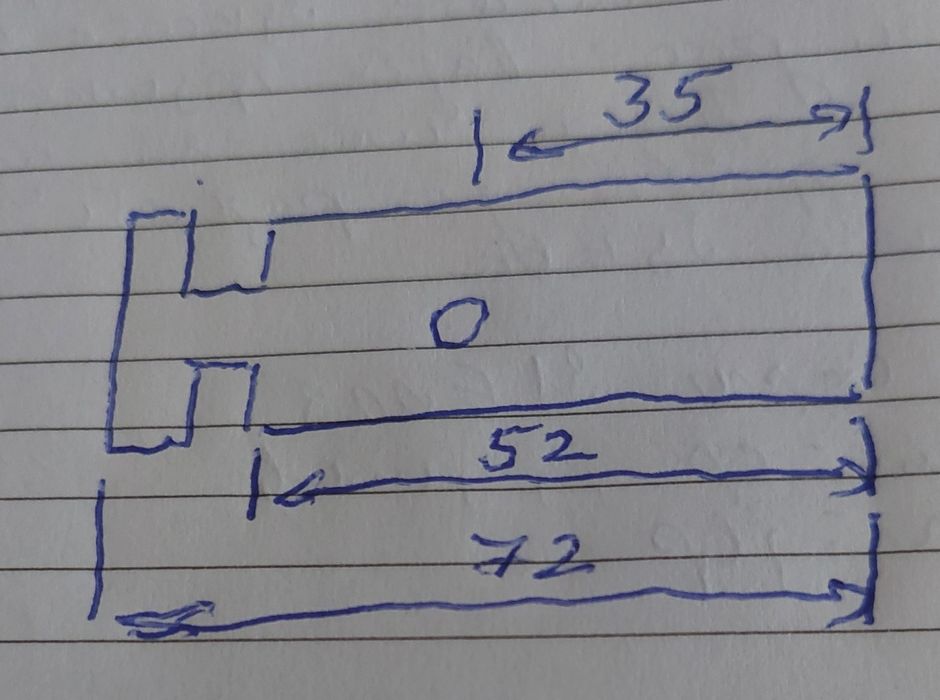 35
52
72